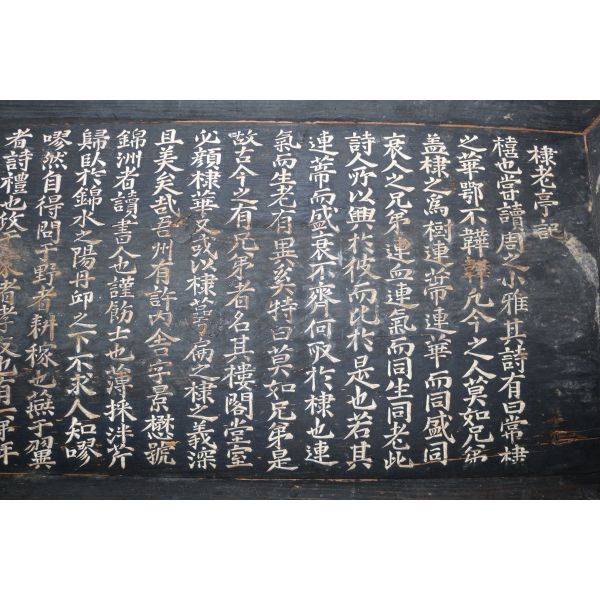 棣老亭記
檍也嘗讀周之小雅其詩有曰常棣
之華鄂不韡韡凡今之人莫如兄弟
盖棣之爲樹連蔕連華而同盛同
衰人之兄弟連血連氣而同生同老此
詩人所以興於彼而比於是也若其
連蔕而盛衰不齊何取於棣也連
氣而生老有異奚特曰莫如兄弟是
故古今之有兄弟者名其樓閣堂室
必顔棣華又或以棣萼扁之棣之義深
且美矣哉吾州有許內舍字景懋號
錦洲者讀書人也謹飭士也薄採泮芹
歸臥於錦水之陽丹邱之下不求人知嘐
嘐然自得問于野者耕稼也燕子翼
者詩禮也攸于家者孝友也有一男年